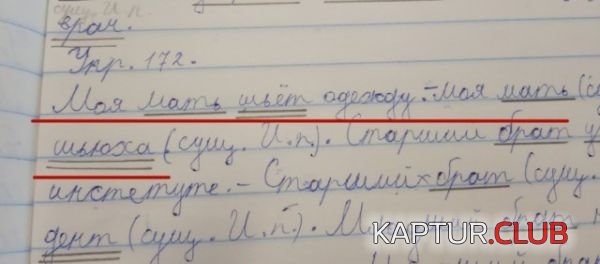 сущ. И. п.
врач.
Упр. 172.
Моя мать шьёт одежду. - Моя мать (су
шьюха (сущ. И.п.). Старший брат у
инстетуте. - Старший брат (сущ.
дент (сущ. И.п). брат
KAPTUR.CLUB